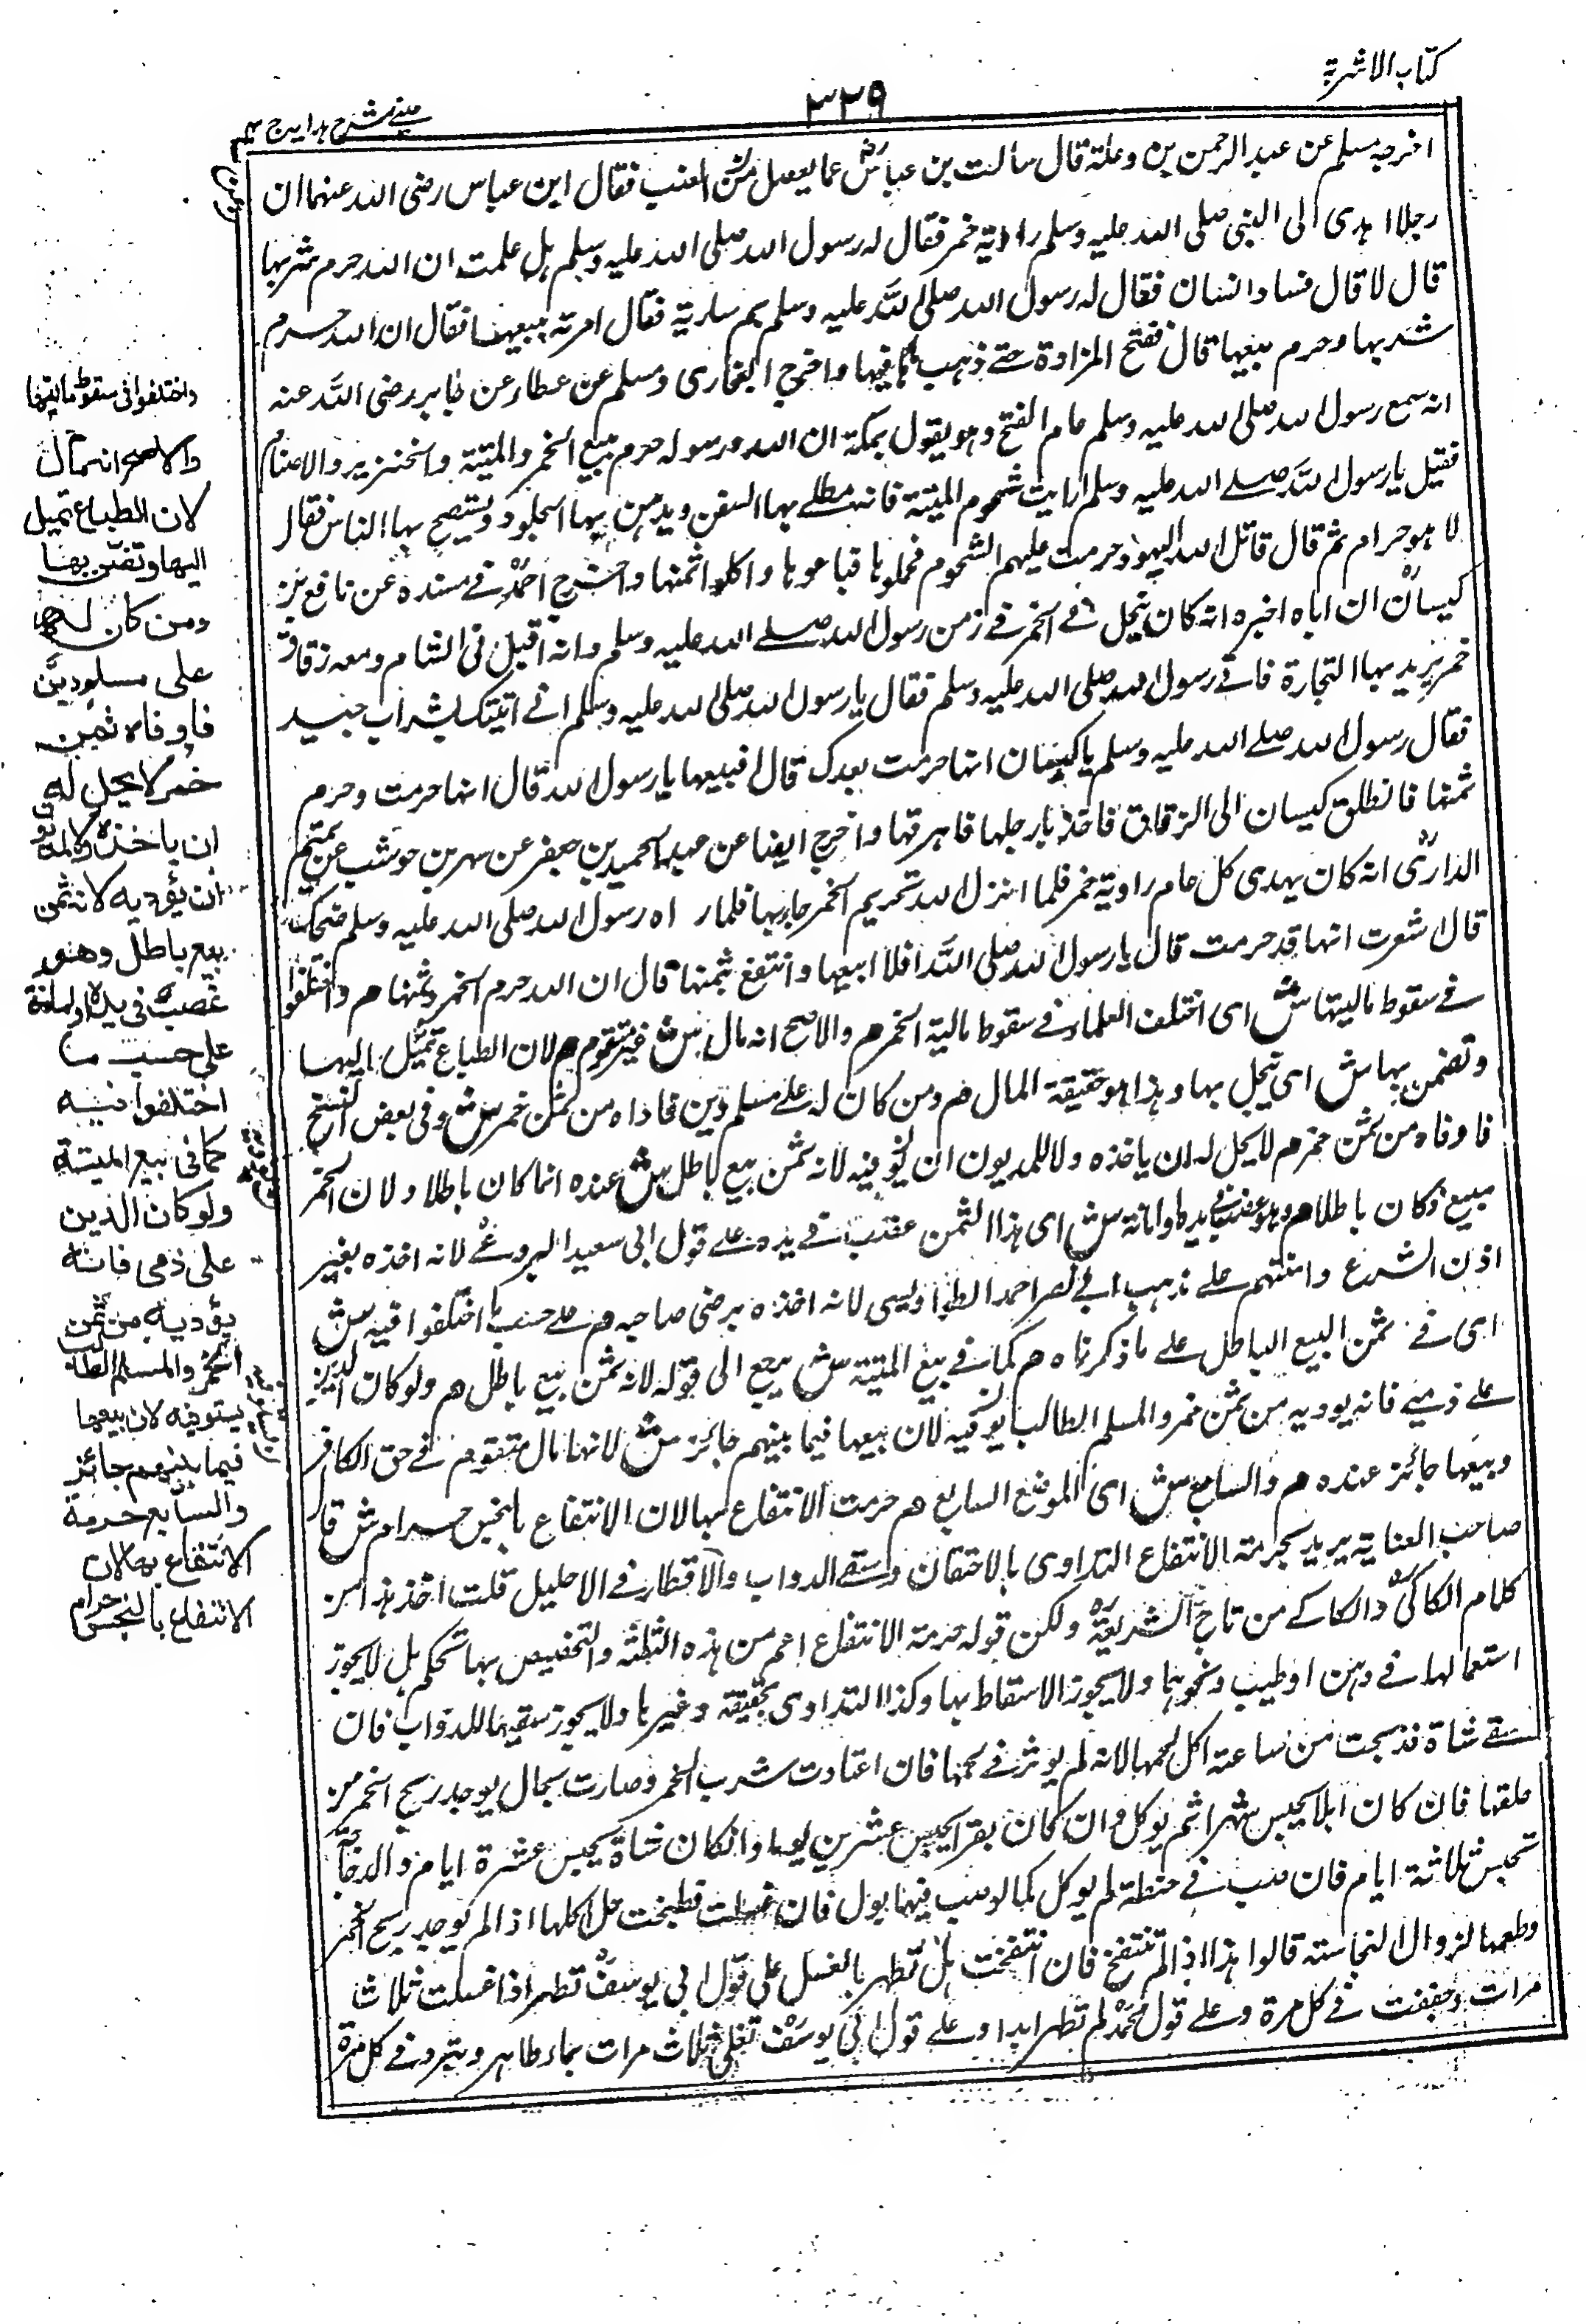 كتاب الاشربة
٣٢٩
عينے شرح ہدايہ ج ٣
اخرجه مسلم عن عبد الرحمن بن وعلة قال سألت بن عباس عما يعصل من العنب فقال ابن عباس رضى الله عنهما ان
رجلا اهدى الى النبى صلى الله عليه وسلم راوية خمر فقال له رسول الله صلى الله عليه وسلم هل علمت ان الله حرم شربها
قال لا قال فساد انسان فقال له رسول الله صلى الله عليه وسلم بم ساريته فقال امرته ببيعها فقال ان الله حرم
شربها وحرم بيعها قال ففتح المزادة حتے ذهب ما فيها واخرج البخارى ومسلم عن عطاء عن جابر رضى الله عنه
انه سمع رسول الله صلى الله عليه وسلم عام الفتح وهو يقول بمكة ان الله ورسوله حرم بيع الخمر والميتة والخنزير والاصنام
فقيل يا رسول الله صلے الله عليه وسلم ارايت شحوم الميتة فانه يطلے بها السفن ويدهن بها الجلود ويستصبح بها الناس فقال
لا هو حرام ثم قال قاتل الله اليهود حرمت عليهم الشحوم فجملوها فباعوها واكلوا ثمنها واخرج احمد فے مسنده عن نافع بن
كيسان ان اباه اخبره انه كان يتجل فے الخمر فے زمن رسول الله صلے الله عليه وسلم وانه اقبل فى الشام ومعه زقاق
خمر يريد بها التجارة فاتے رسول الله صلى الله عليه وسلم فقال يا رسول الله صلى الله عليه وسلم انے اتيتك بشراب جيد
فقال رسول الله صلے الله عليه وسلم يا كيسان انها حرمت بعدك قال افبيعها يا رسول الله قال انها حرمت وحرم
ثمنها فانطلق كيسان الى الزقاق فاخذ بارجلها فاهرقها واخرج ايضا عن عبد الحميد بن جعفر عن سهر بن حوشب عن تميم
الدارى انه كان يهدى كل عام راوية خمر فلما انزل الله تحريم الخمر جاء بها فلما راه رسول الله صلى الله عليه وسلم ضحك
قال اشعرت انها قد حرمت قال يا رسول الله صلى الله افلا ابيعها وانتفع بثمنها قال ان الله حرم الخمر وثمنها هم واختلفوا
فے سقوط ماليتها ش اى اختلف العلماء فے سقوط مالية الخمر هم والاصح انه مال ش غير متقوم هم لان الطباع تميل اليها
وتضمن بها ش اى تبخل بها وهذا هو حقيقة المال هم ومن كان له على مسلم دين فاداه من ثمن خمر ش وفى بعض النسخ
فاوفاه من ثمن خمر هم لا يحل له ان ياخذه ولا للمديون ان يوفيه لانه ثمن بيع باطل ش عنده انما كان باطلا ولان الخمر
مبيع فكان باطلا هم وهو غصب فے يده او امانة ش اى هذا الثمن غصب فے يده علے قول ابى سعيد البروعے لانه اخذه بغير
اذن الشرع وامانتهم علے مذهب ابى نصر احمد الطواويسى لانه اخذه برضى صاحبه هم علے حسب ما اختلفوا فيه ش
اى فے ثمن البيع الباطل علے ما ذكرناه هم كما فے بيع الميتة ش يرجع الى قوله لانه ثمن بيع باطل هم ولو كان الدين
علے ذمے فانه يوديه من ثمن خمر والمسلم الطالب يوفيه لان بيعها فيما بينهم جائز ش لانها مال متقوم فے حق الكافر
وبيعها جائز عنده هم والسابع ش اى الموضع السابع هم حرمت الانتفاع بها لان الانتفاع بالنجس حرام ش قال
صاحب العناية يريد بحرمة الانتفاع التداوى بالاحتقان وسقے الدواب والاقطار فے الاحليل قلت اخذ هذا من
كلام الكاكى والكاكے من تاج الشريعة ولكن قوله حرمة الانتفاع اعم من هذه الثلثة والتخصيص بها تحكم بل لا يجوز
استعمالها فے دهن او طيب ونحوهما ولا يجوز الاسقاط بها وكذا التداوى بحقنة وغيرها ولا يجوز سقيها للدواب فان
سقے شاة فذبحت من ساعته اكل لحمها لانه لم يوثر فے لحمها فان اعتادت شرب الخمر وصارت بحال يوجد ريح الخمر من
حلقها فان كان ابلا يحبس شهرا ثم يوكل وان كان بقرا يحبس عشرين يوما وانكان شاة يحبس عشرة ايام والدجاج
تحبس ثلاثة ايام فان صب فے حنطة لم يوكل كما لو صب فيها بول فان غسلت فطبخت حل اكلها اذا لم يوجد ريح الخمر
وطعمها لزوال النجاسته قالوا هذا اذا لم تنتفخ فان انتفخت هل تطهر بالغسل على قول ابى يوسف تطهر اذا غسلت ثلاث
مرات وجففت فے كل مرة وعلے قول محمد لم تطهر ابدا وعلے قول ابى يوسف تغلى ثلاث مرات بماء طاهر ويتبرد فے كل مرة
واختلفوا فى سقوط ماليتها
والاصح انه مال
لان الطباع تميل
اليها وتضن بها
ومن كان له
على مسلم دين
فاوفاه ثمن
خمر لا يحل له
ان ياخذه ولا للمديون
ان يؤديه لانه ثمن
بيع باطل وهو
غصب فى يده او امانة
على حسب ما
اختلفوا فيه
كما فى بيع الميتة
ولو كان الدين
على ذمى فانه
يؤديه من ثمن
الخمر والمسلم الطالب
يستوفيه لان بيعها
فيما بينهم جائز
والسابع حرمة
الانتفاع بها لان
الانتفاع بالنجس حرام